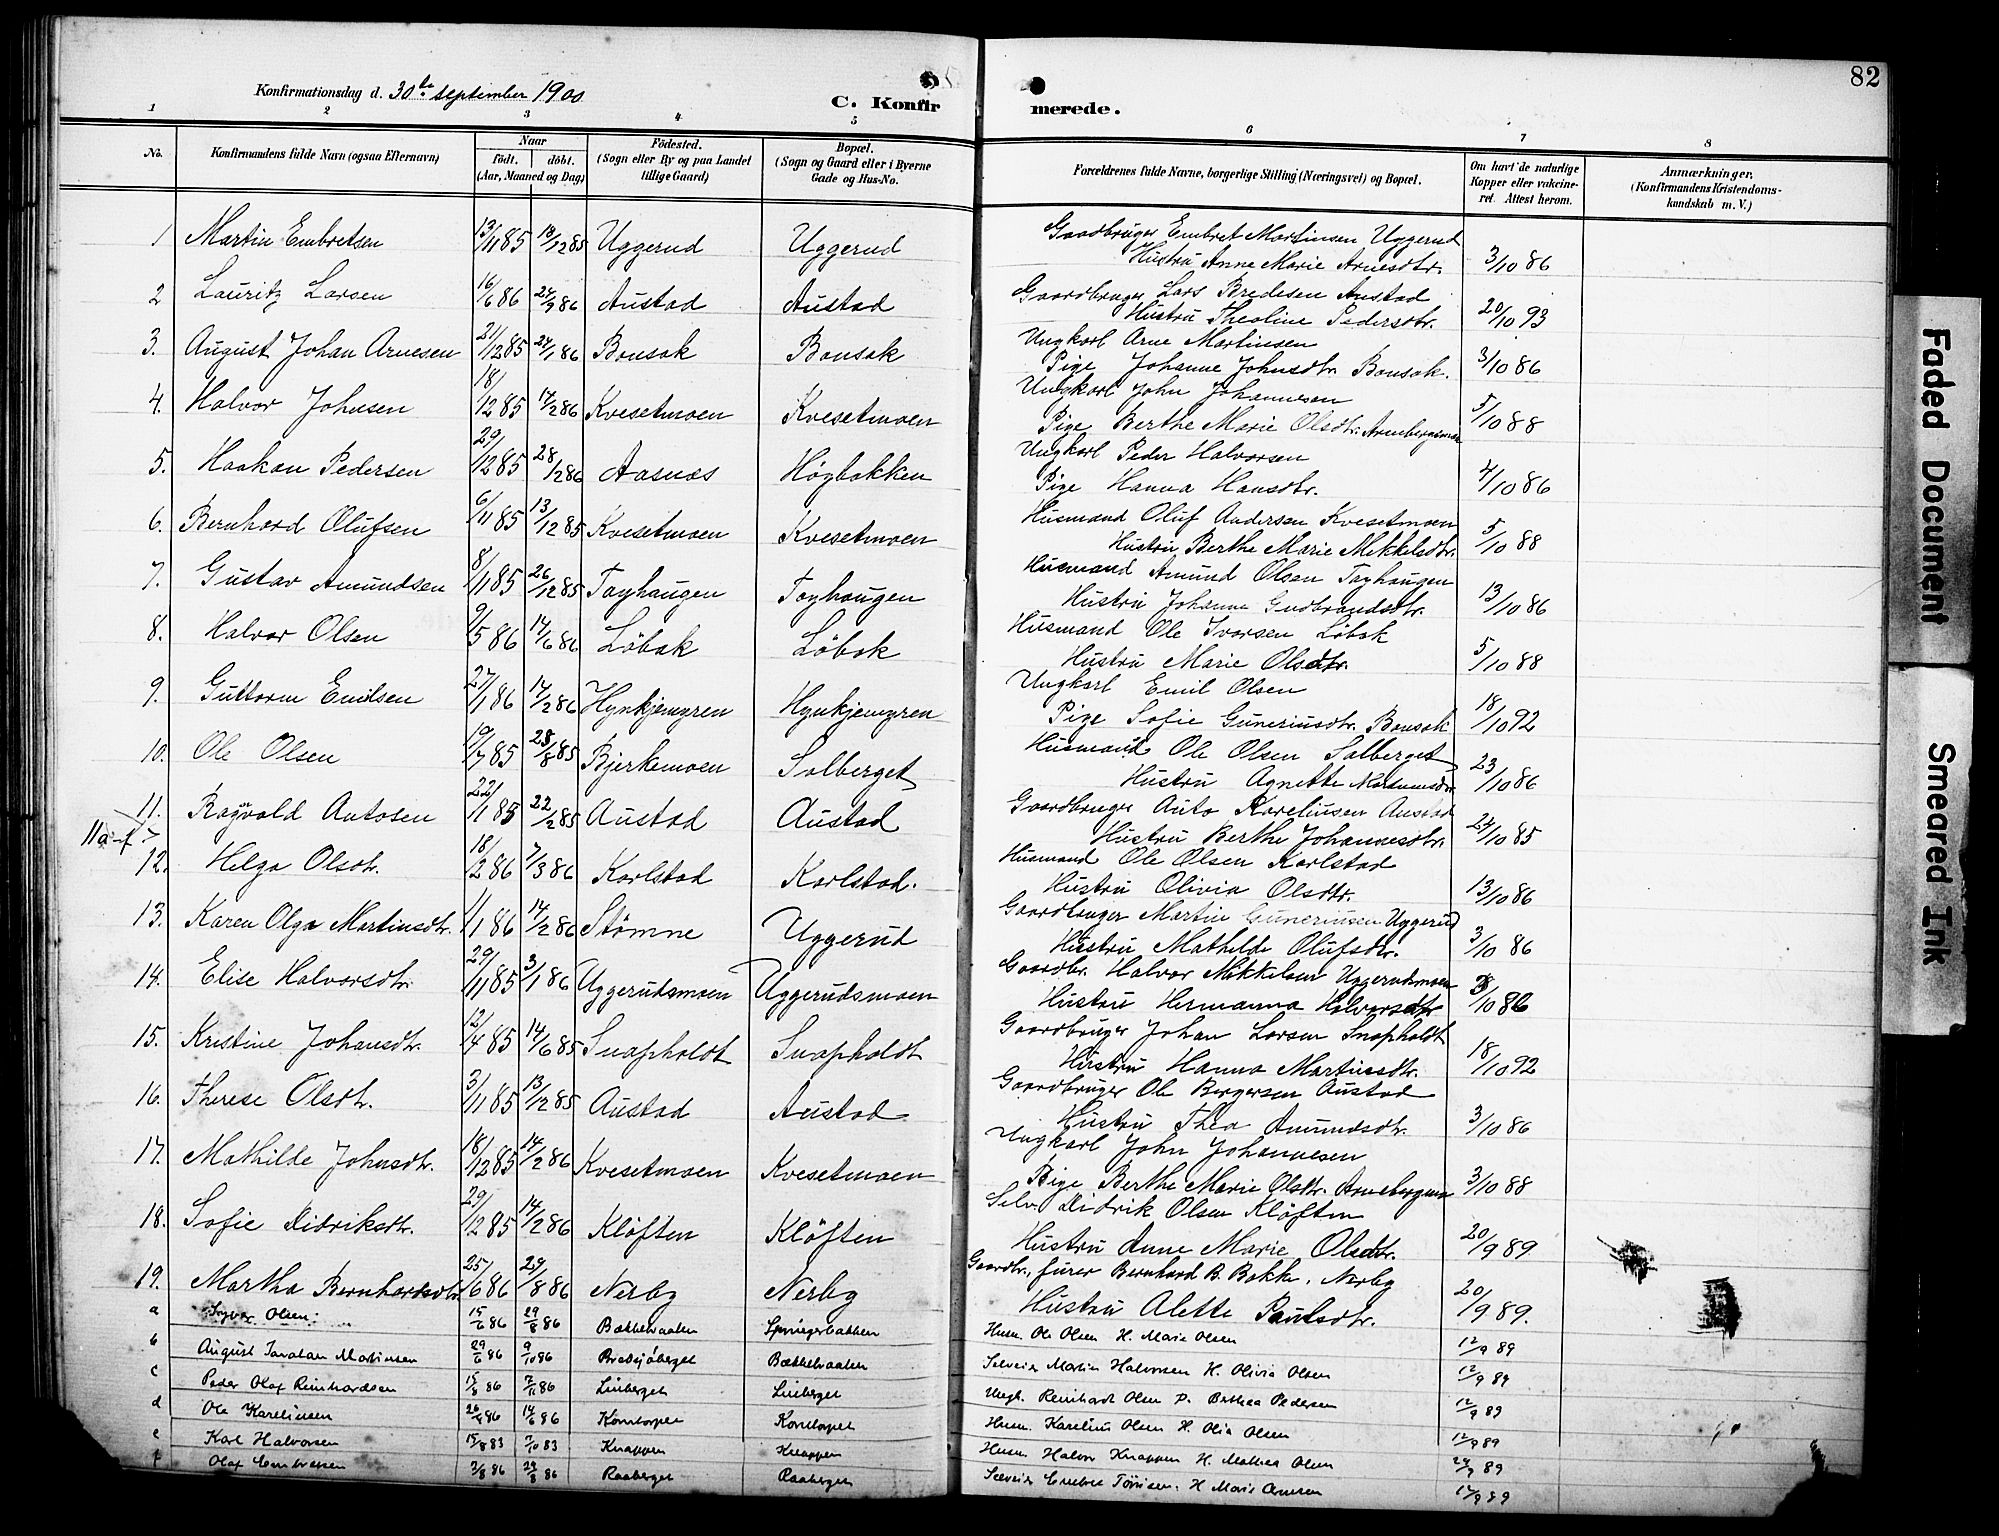 82
Konfirmationsdag d. 30te september 1900
C. Konfirmerede.
1 2 3 4 5 6 7 8
No.
Konfirmandens fulde Navn (ogsaa Efternavn)
Naar født. døbt. (Aar, Maaned og Dag)
Fødested. (Sogn eller By og paa Landet tillige Gaard)
Bopæl. (Sogn og Gaard eller i Byerne Gade og Hus-No.
Forældrenes fulde Navne, borgerlige Stilling (Næringsvei) og Bopæl.
Om havt de naturlige Kopper eller vakcineret. Attest herom.
Anmærkninger. (Konfirmandens Kristendomskundskab m. V.)
1 Martin Embretsen 13/11 85 18/12 85 Uggerud Uggerud Gaardbruger Embret Martinsen Uggerud
Hustru Anne Marie Arnesdtr. 3/10 86
2 Lauritz Larsen 16/6 86 24/9 86 Austad Austad Gaardbruger Lars Bredesen Austad
Hustru Theoline Pedersdtr. 20/10 93
3. August Johan Arnesen 21/12 85 24/1 86 Bonsak Bonsak Ungkarl Arne Martinsen
Pige Johanne Johnsdtr. Bonsak. 3/10 86
4. Halvor Johnsen 18/12 85 14/2 86 Kvesetmoen Kvesetmoen Ungkarl John Johannesen
Pige Berthe Marie Olsdtr. 5/10 88
5. Haakon Pedersen 29/12 85 28/12 86 Aasnes Høgbakken Ungkarl Peder Halvorsen
Pige Hanna Hansdtr. 4/10 86
6. Bernhard Olufsen 6/11 85 13/12 85 Kvesetmoen Kvesetmoen Husmand Oluf Andersen Kvesetmoen
Hustru Berthe Marie Mikkelsdtr. 5/10 88
7. Gustav Amundsen 8/11 85 26/12 85 Tayhaugen Tayhaugen Husmand Amund Olsen Tayhaugen
Hustru Johanna Gudbrandsdtr. 13/10 86
8. Halvor Olsen 9/5 86 14/6 86 Løbak Løbak Husmand Ole Ivarsen Løbak
Hustru Marie Olsdtr. 5/10 88
9. Guttorm Emilsen 27/1 86 14/2 86 Hynkjemyren Hynkjemyren Ungkarl Emil Olsen
Pige Sofie Guneriusdtr. Bonsak 18/10 92
10. Ole Olsen 19/7 85 23/8 85 Bjerkemoen Solberget Husmand Ole Olsen Solberget
Hustru Agnette 23/10 86
11. Ragvald Antosen 22/1 85 22/2 85 Austad Austad Gaardbruger Anto Kareliusen Austad
Hustru Berthe Johannesdtr. 24/10 85
11a-f >
12. Helga Olsdtr. 18/2 86 7/3 86 Karlstad Karlstad. Husmand Ole Olsen Karlstad
Hustru Olivia Olsdtr. 13/10 86
13. Karen Olga Martinsdtr. 1/1 86 14/2 86 Stømne Uggerud Gaardbruger Martin Guneriusen Uggerud
Hustru Mathilde Olufsdtr. 3/10 86
14. Elise Halvorsdtr. 29/11 85 3/1 86 Uggerudsmoen Uggerudsmoen Gaardbr. Halvor Mikkelsen Uggerudsmoen
Hustru Hermanna Halvorsdtr 3/10 86
15. Kristine Johansdtr. 12/4 85 14/6 85 Snapholdt Snapholdt Gaardbruger Johan Larsen Snapholdt
Hustru Hanna Martinsdtr. 18/10 92
16. Therese Olsdtr. 3/11 85 13/12 85 Austad Austad Gaardbruger Ole Bergersen Austad
Hustru Thea Amundsdtr. 3/10 86
17. Mathilde Johnsdtr. 18/12 85 14/2 86 Kvesetmoen Kvesetmoen Ungkarl John Johannesen
Pige Berthe Marie Olsdtr. 3/10 88
18. Sofie Didriksdtr. 29/12 85 14/2 86 Kløften Kløften Selv. Didrik Olsen Kløften
Hustru Anne Marie Olsdtr. 20/9 89
19. Martha Bernhardsdtr. 25/6 86 29/8 86 Nerby Nerby Gaardbr., furer Bernhard B. Bakke, Nerby
Hustru Alette Paulsdtr. 20/9 89.
a Ingvar Olsen 15/6 86 29/8 86 Bækkevaalen Springerbakken Husm. Ole Olsen H. Marie Olsen 12/9 89
b August Jonatan Martinsen 29/6 86 9/10 86 Brødsjøberget Bækkevaalen Selveier Martin Halvorsen H. Olivia Olsen 12/9 89
c Peder Olaf Reinhardsen 15/8 86 7/11 86 Linberget Linberget Ungk. Reinhardt Olsen P. Berthea Pedersen 12/9 89
d Ole Kareliusen 26/4 86 14/6 86 Korntorpet Korntorpet Husm. Karelius Olsen H. Olia Olsen 12/9 89
e Karl Halvorsen 15/8 83 7/10 83 Knappen Knappen Husm. Halvor Knappen H. Mathea Olsen 24/9 89
f Olaf Embretsen 3/8 86 29/8 86 Raaberget Raaberget Selveier Embret Tørrisen H Marie Arnesen 12/9 89
Faded Document
Smeared Ink